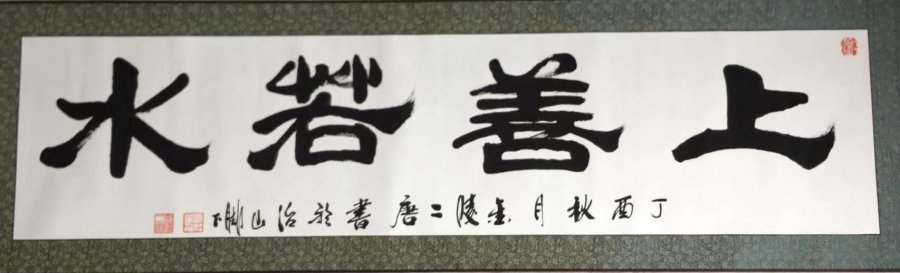 上善若水
丁酉秋月金陵二唐書於冶山腳下